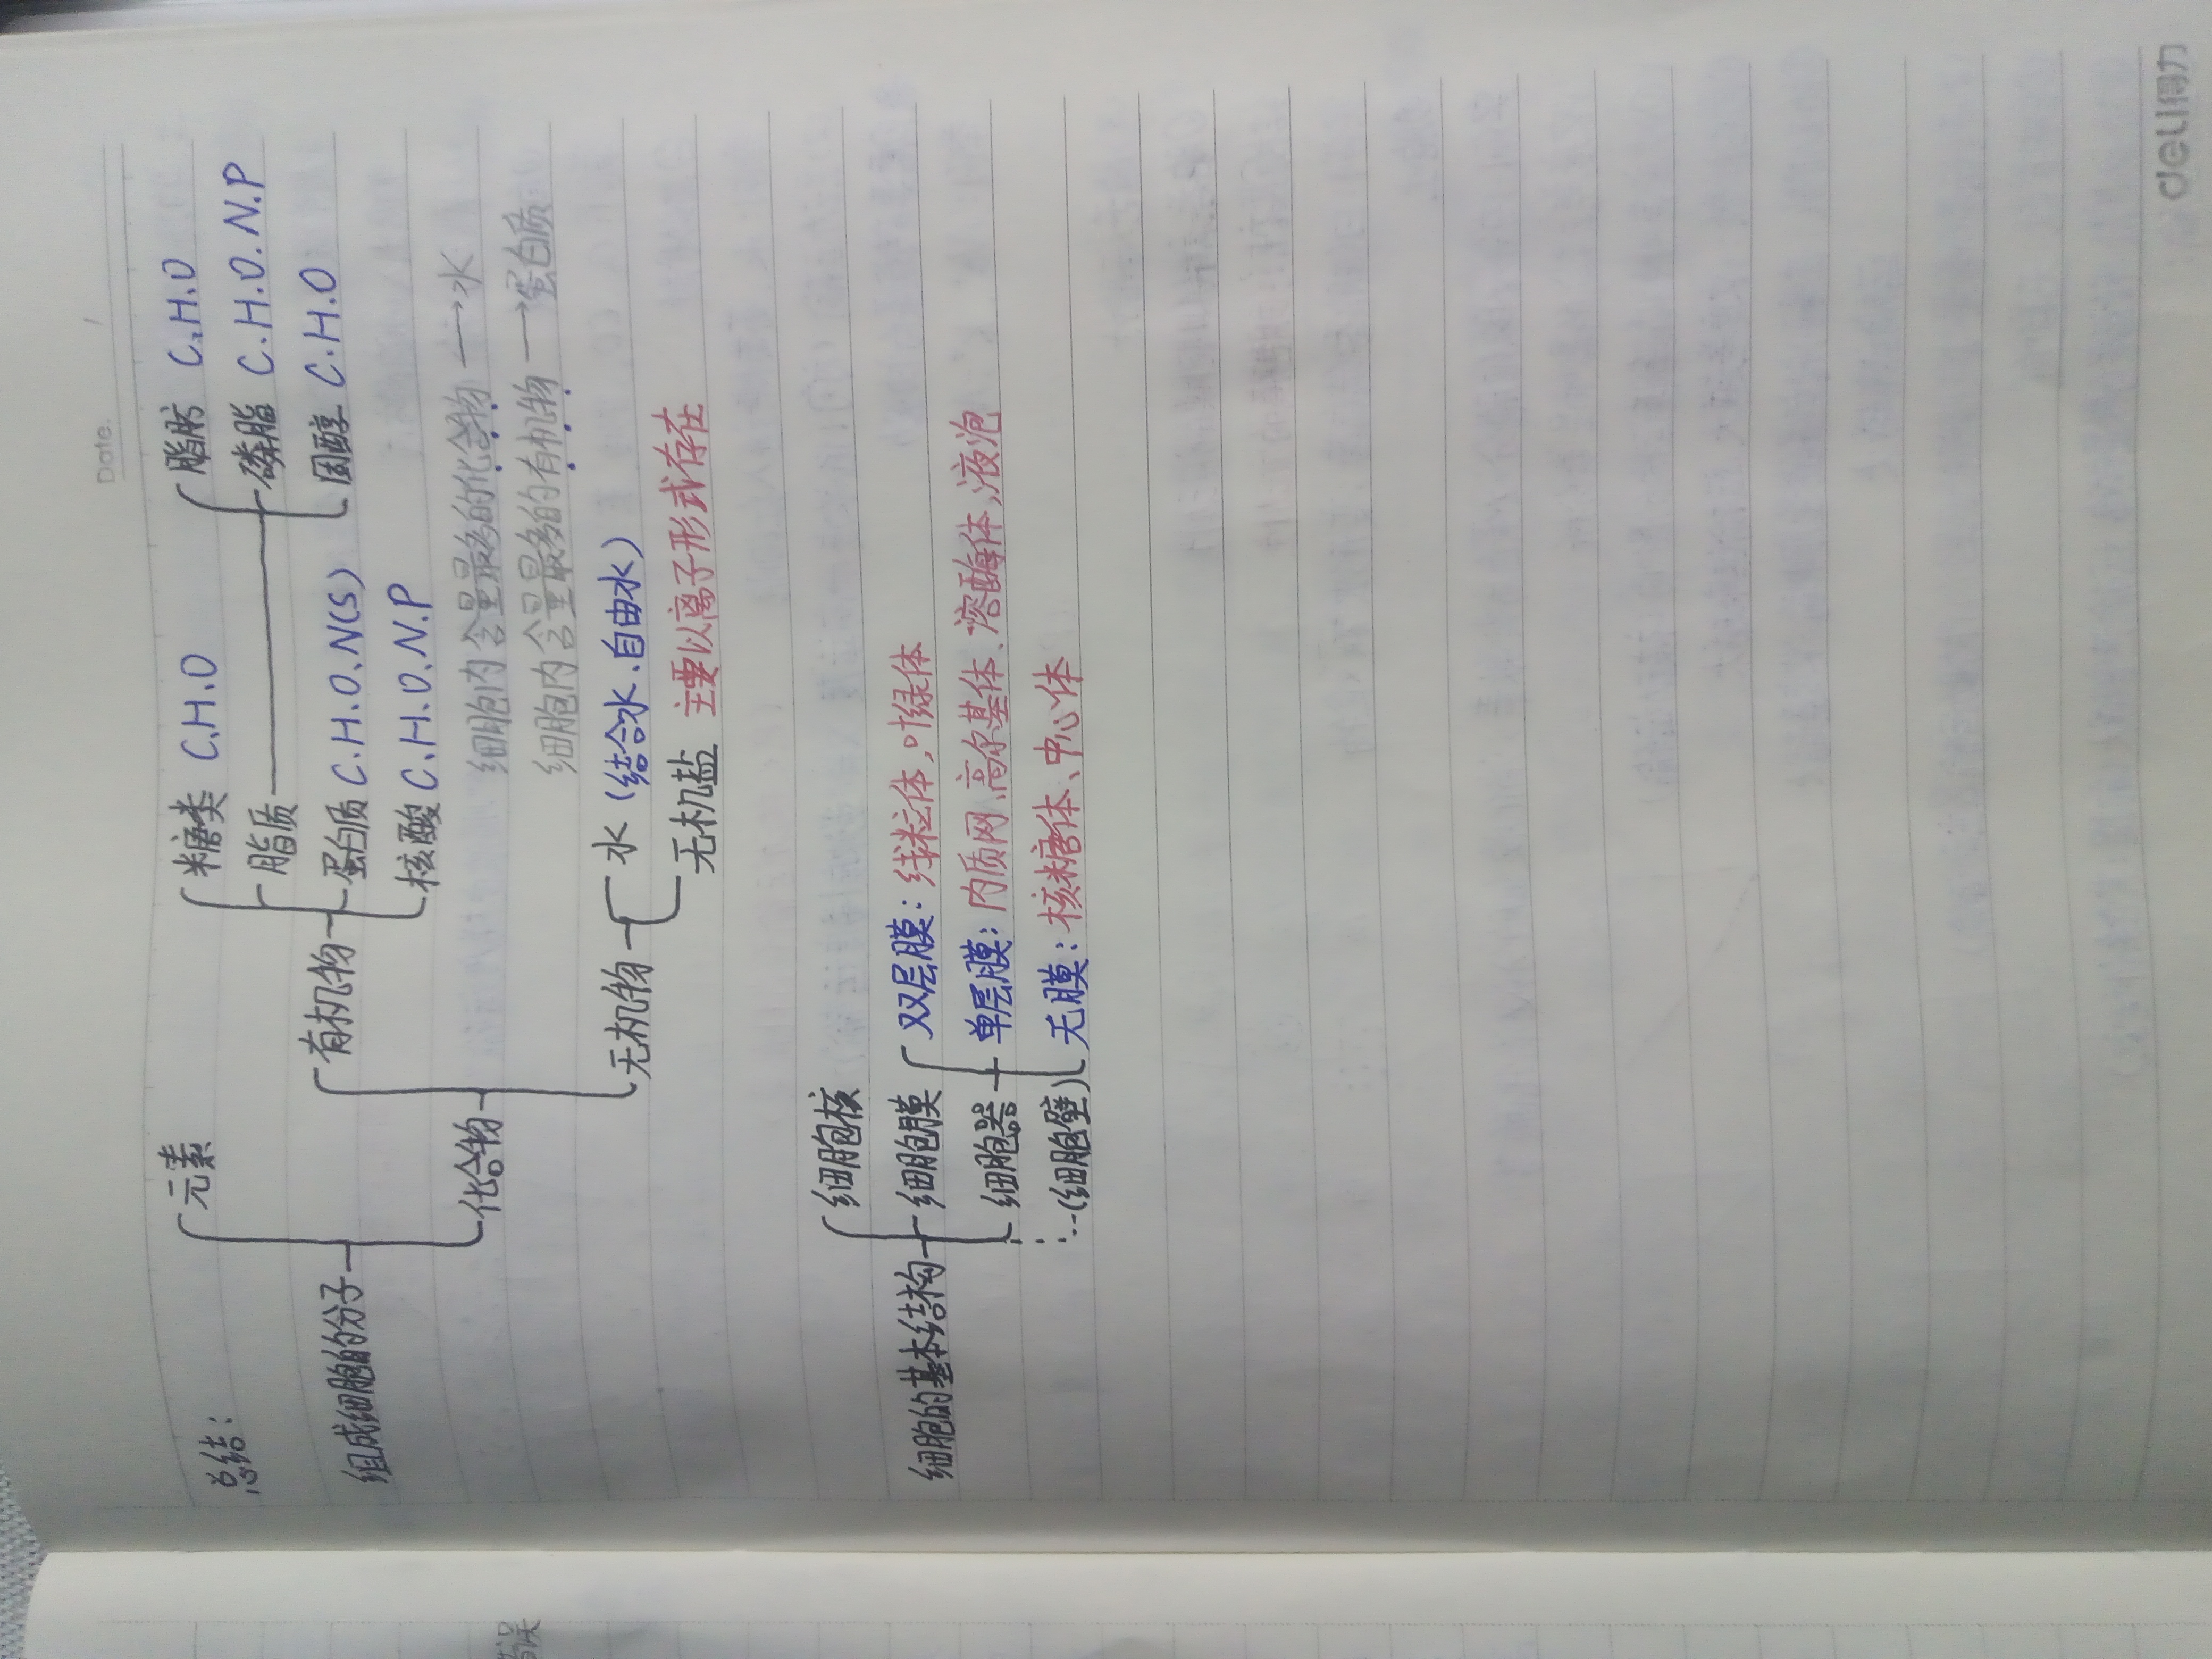 Date.
总结:
元素
糖类 C.H.O
脂肪 C.H.O
脂质
磷脂 C.H.O.N.P
组成细胞的分子
有机物
蛋白质 C.H.O.N(S)
固醇 C.H.O
核酸 C.H.O.N.P
化合物
细胞内含量最多的化合物→水
细胞内含量最多的有机物→蛋白质
无机物
水(结合水.自由水)
无机盐 主要以离子形式存在
细胞核
细胞的基本结构
细胞膜
双层膜:线粒体,叶绿体
细胞器
单层膜:内质网、高尔基体、溶酶体,液泡
(细胞壁)
无膜:核糖体、中心体
deli得力